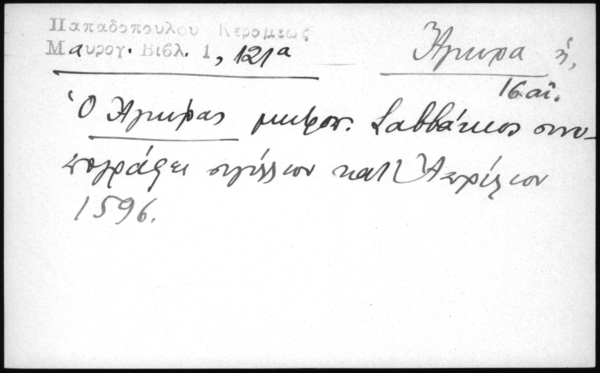 Παπαδοπούλου Κεραμέως
Μαυρογ. Βιβλ. 1, 121α
Ἄγκυρα ἡ,
16 αἰ.
Ὁ Ἀγκύρας μητροπ. Σαββάτιος συνυ-
πογράφει σιγίλλιον κατ' Ἀπρίλιον
1596.